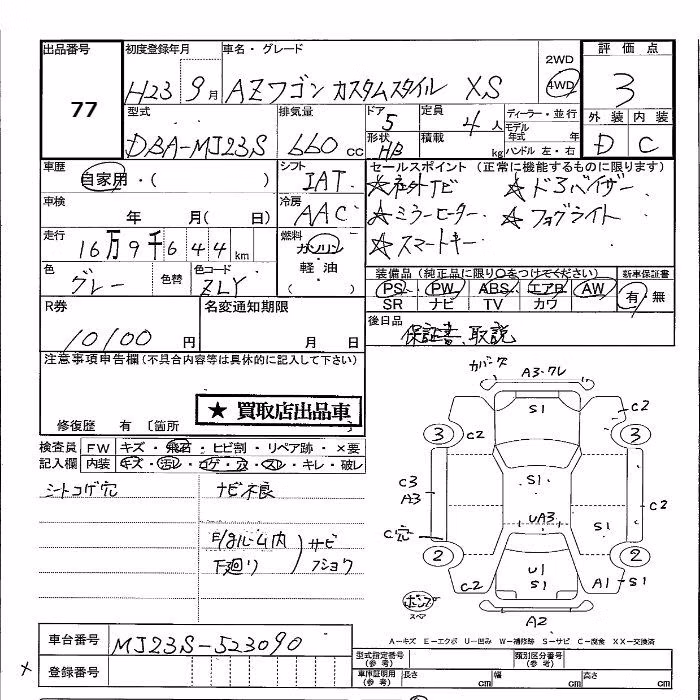 出品番号 初度登録年月 車名・グレード 評価点
77 H23 9月 AZワゴン カスタムスタイル XS 2WD 4WD 3
型式 排気量 ドア 定員 ディーラー・並行 外装 内装
DBA-MJ23S 660cc 5 4人 モデル年式 年 D C
形状 HB 積載 kg ハンドル 左・右
車歴 シフト セールスポイント (正常に機能するものに限ります)
自家用・( ) IAT ☆社外ナビ ☆ドアバイザー
車検 冷房 ☆ミラーヒーター ☆フォグライト
年 月( 日) AAC ☆スマートキー
走行 16万9千644km 燃料 ガソリン
色 色替 色コード 軽・油 装備品(純正品に限り○をつけてください) 新車保証書
グレー ZLY ( ) PS PW ABS エアB AW 有・無
R券 名変通知期限 SR ナビ TV カワ
10100円 月 日 後日品
保証書、取説
注意事項申告欄(不具合内容等は具体的に記入して下さい)
★買取店出品車
修復歴 有 〔箇所 〕
検査員 FW キズ・飛石・ヒビ割・リペア跡・×要
記入欄 内装 キズ・汚レ・コゲ・穴・スレ・キレ・破レ
シートコゲ穴 ナビ不良
下廻り サビ
A3・ワレ
S1
C2
3 C2 3
S1
C3
A3 C2
UA3 S1
C穴
2 2
U1
C2 S1 A1 S1
スペア
A2
A-キズ E-エクボ U-凹み W-補修跡 S-サビ C-腐食 XX-交換済
車台番号 MJ23S-523090
型式指定番号(参考) 類別区分番号(参考)
登録番号 車庫証明用(参考) 長さ cm 幅 cm 高さ cm